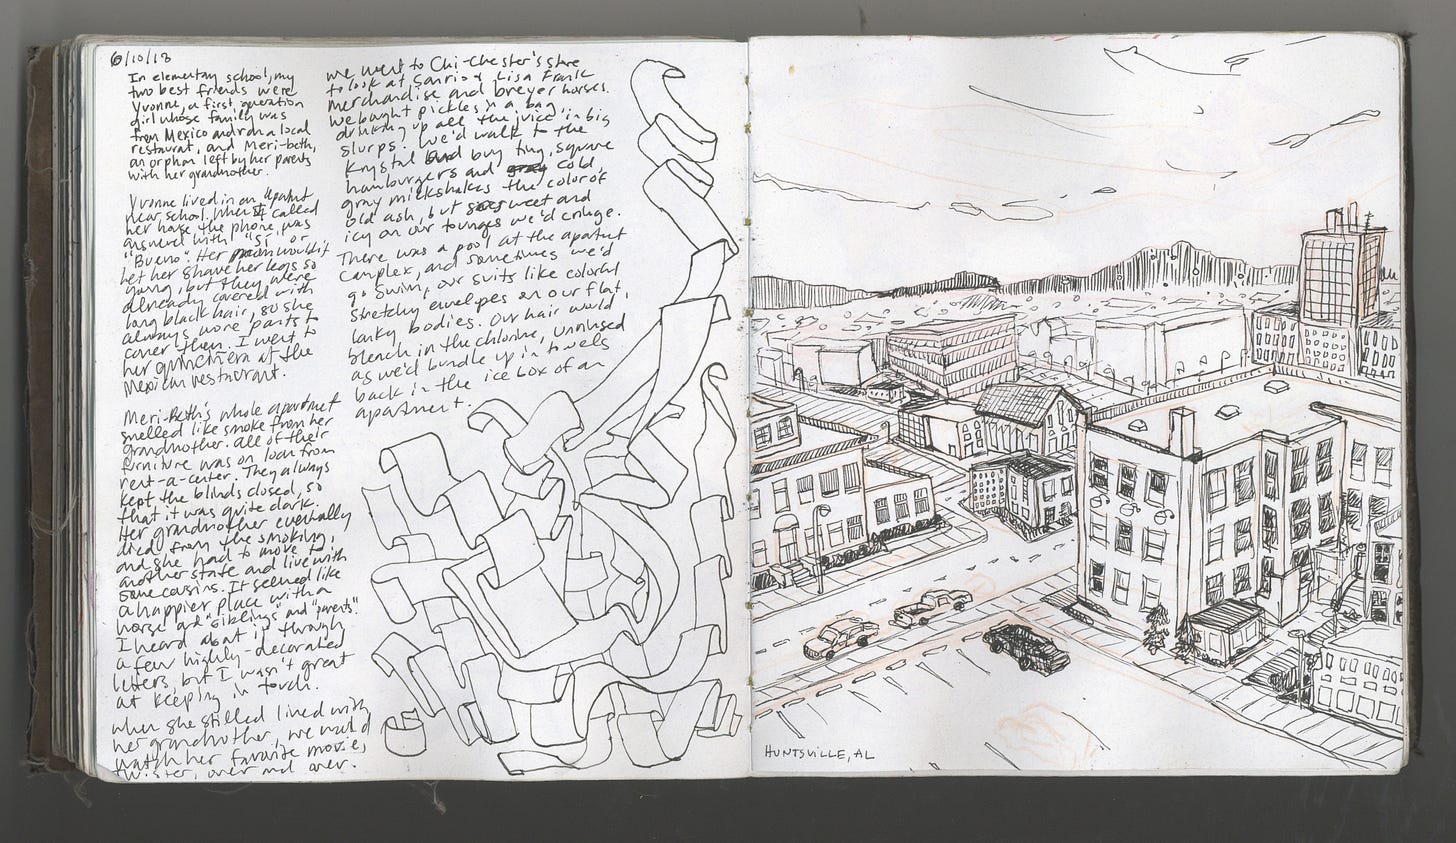 6/10/18
In elementary school, my
two best friends were
Yvonne, a first generation
girl whose family was
from Mexico and ran a local
restaurant, and Meri-beth,
an orphan left by her parents
with her grandmother.
Yvonne lived in an apartment
near school. When I called
her house the phone was
answered with "Si" or
"Bueno". Her mom wouldn't
let her shave her legs so
young, but they were
already covered with
long black hair, so she
always wore pants to
cover them. I went to
her quinceañera at the
Mexican restaurant.
Meri-Beth's whole apartment
smelled like smoke from her
grandmother. all of their
furniture was on loan from
rent-a-center. They always
kept the blinds closed, so
that it was quite dark.
Her grandmother eventually
died from the smoking,
and she had to move to
another state and live with
some cousins. It seemed like
a happier place with a
horse and "siblings" and "parents".
I heard about it through
a few highly-decorated
letters, but I wasn't great
at keeping in touch.
when she stilled lived with
her grandmother, we would
watch her favorite movie,
twister, over and over.
we went to Chi-Chester's store
to look at Sanrio & Lisa Frank
merchandise and breyer horses.
we bought pickles in a bag
drinking up all the juice in big
slurps. We'd walk to the
Krystal and buy tiny, square
hamburgers and cold,
gray milkshakes the color of
old ash, but so sweet and
icy on our tounges we'd cringe.
There was a pool at the apartment
complex, and sometimes we'd
go swim, our suits like colorful
stretchy envelopes on our flat,
lanky bodies. Our hair would
blench in the chlorine, unrinsed
as we'd bundle up in towels
back in the ice box of an
apartment.
HUNTSVILLE, AL